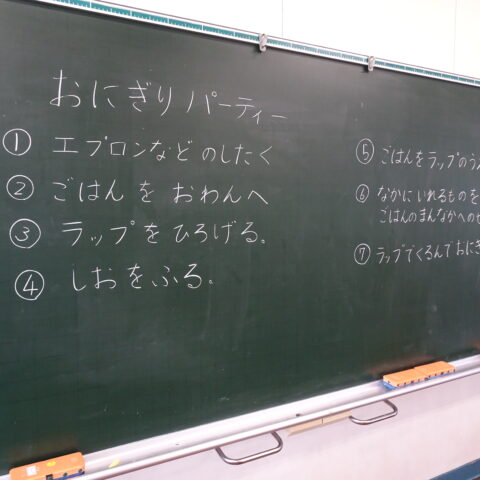 おにぎりパーティー
① エプロンなどのしたく
② ごはんを おわんへ
③ ラップをひろげる。
④ しおをふる。
⑤ ごはんをラップのう
⑥ なかにいれるものを
ごはんのまんなかへの
⑦ ラップでくるんでおに